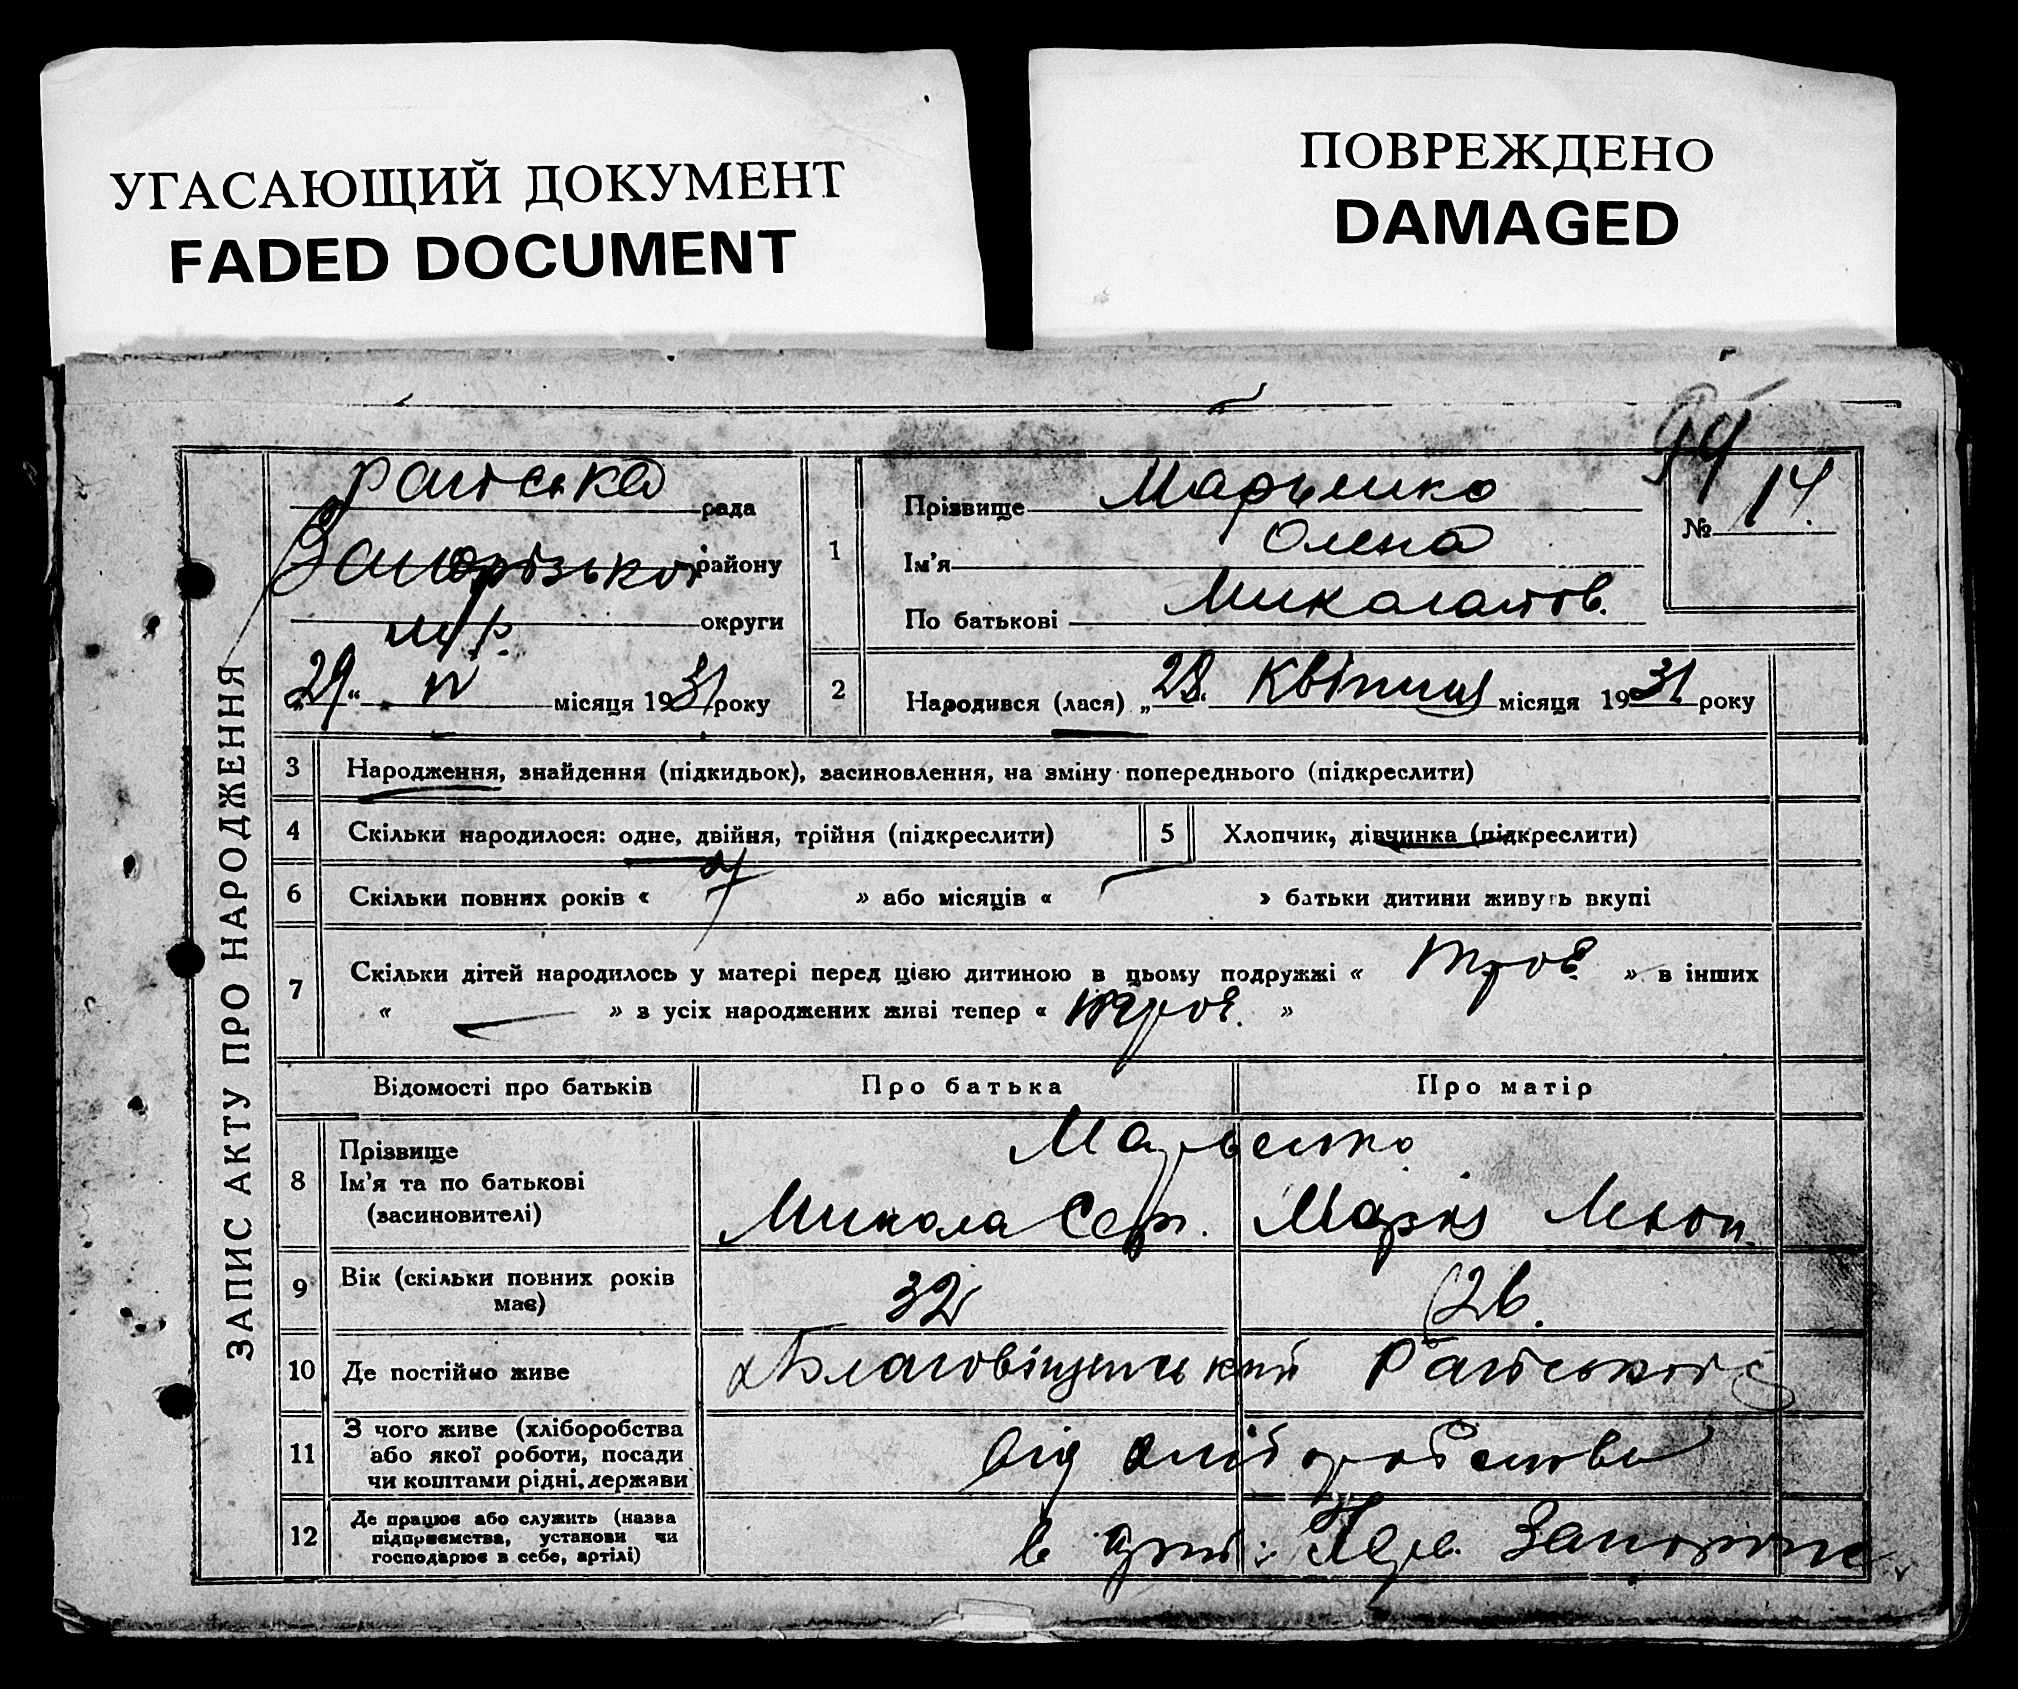 УГАСАЮЩИЙ ДОКУМЕНТ
FADED DOCUMENT
ПОВРЕЖДЕНО
DAMAGED
99
ЗАПИС АКТУ ПРО НАРОДЖЕННЯ
рада
Запорізької району
округи
„29“ IV місяця 1931 року
1
Прізвище Марьенко
Ім'я Олена
По батькові
№ 14.
2
Народився (лася) „28“ Квітня місяця 1931 року
3 Народження, знайдення (підкидьок), засиновлення, на зміну попереднього (підкреслити)
4 Скільки народилося: одне, двійня, трійня (підкреслити)
5 Хлопчик, дівчинка (підкреслити)
6 Скільки повних років « » або місяців « » батьки дитини живуть вкупі
7 Скільки дітей народилось у матері перед цією дитиною в цьому подружжі « троє » в інших
« — » з усіх народжених живі тепер « троє. »
Відомості про батьків
Про батька
Про матір
8 Прізвище
Ім'я та по батькові
(засиновителі)
Марьенко
Микола Сер. Марія
9 Вік (скільки повних років
має)
32
26.
10 Де постійно живе
Благовіщенський
11 З чого живе (хліборобства
або якої роботи, посади
чи коштами рідні, держави
від
12 Де працює або служить (назва
підприємства, установи чи
господарює в себе, артілі)
в арт: